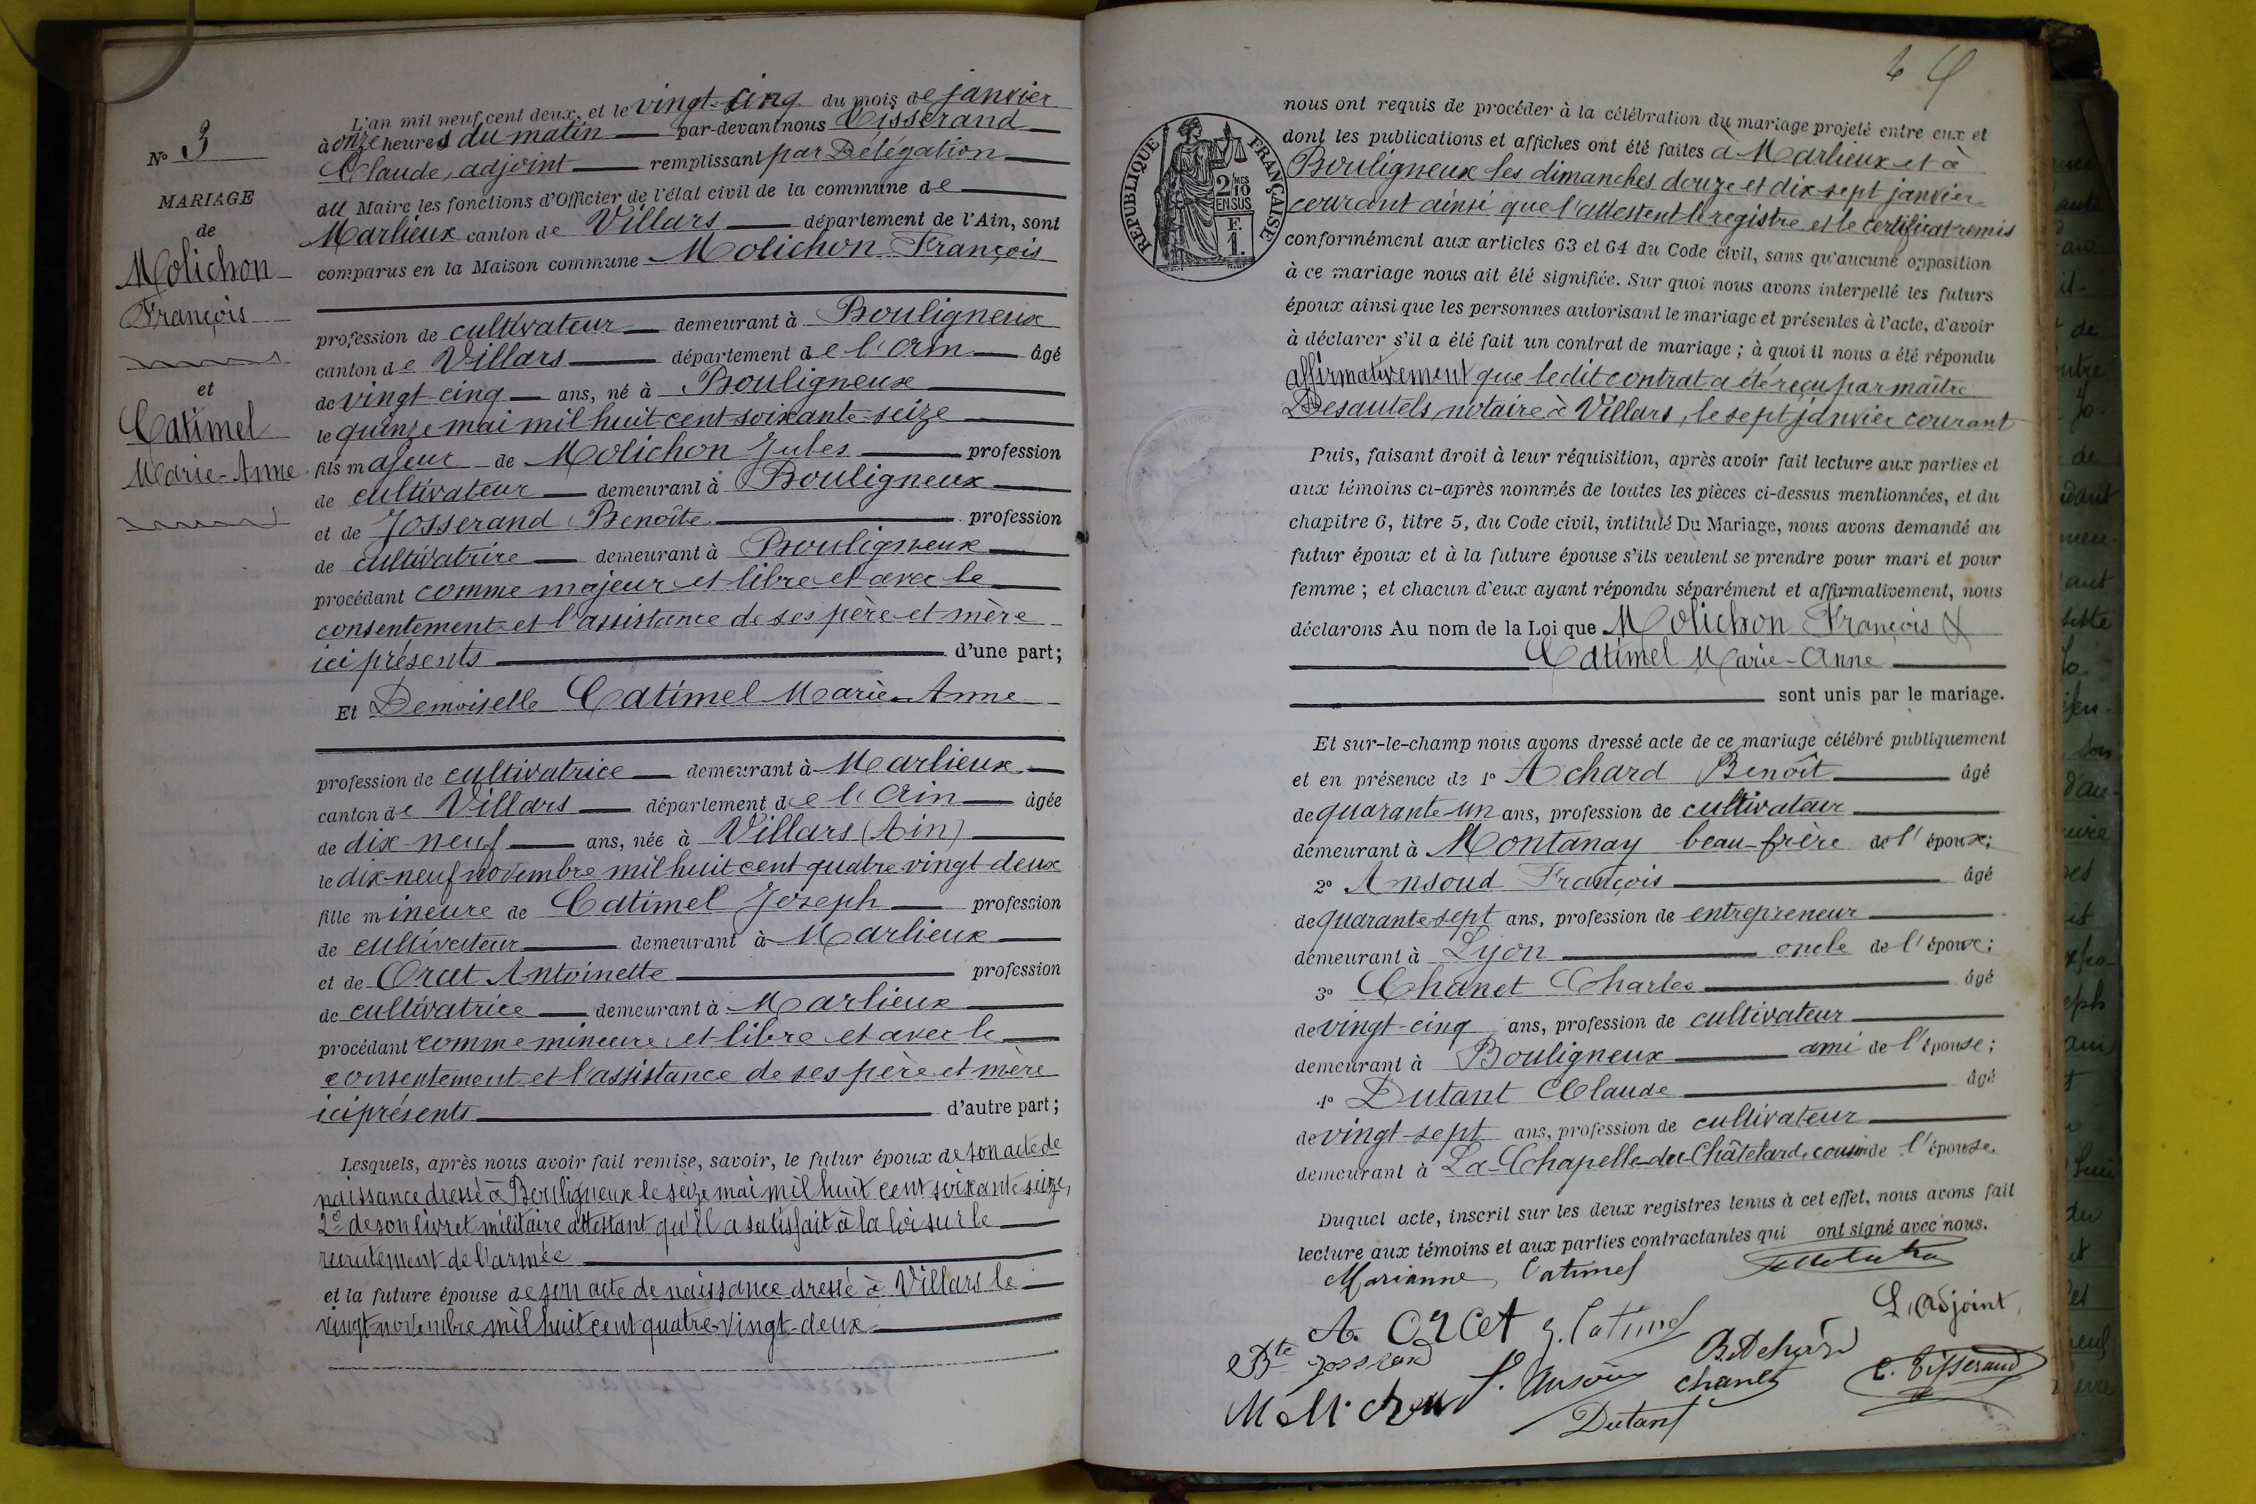 N° 3
MARIAGE
de
Molichon
François
et
Catimel
Marie-Anne
L'an mil neuf cent deux, et le vingt-cinq du mois de janvier
à onze heures du matin par-devant nous Tisserand
Claude, adjoint remplissant par Délégation
du Maire les fonctions d'Officier de l'état civil de la commune de
Marlieux canton de Villars département de l'Ain, sont
comparus en la Maison commune Molichon François
profession de cultivateur demeurant à Bouligneux
canton de Villars département de l'Ain âgé
de vingt-cinq ans, né à Bouligneux
le quinze mai mil huit cent soixante-seize
fils majeur de Molichon Jules profession
de cultivateur demeurant à Bouligneux
et de Josserand Benoîte profession
de cultivatrice demeurant à Bouligneux
procédant comme majeur et libre et avec le
consentement et l'assistance de ses père et mère
ici présents d'une part;
Et Demoiselle Catimel Marie-Anne
profession de cultivatrice demeurant à Marlieux
canton de Villars département de l'Ain âgée
de dix-neuf ans, née à Villars (Ain)
le dix-neuf novembre mil huit cent quatre vingt deux
fille mineure de Catimel Joseph profession
de cultivateur demeurant à Marlieux
et de Orcet Antoinette profession
de cultivatrice demeurant à Marlieux
procédant comme mineure et libre et avec le
consentement et l'assistance de ses père et mère
ici présents d'autre part;
Lesquels, après nous avoir fait remise, savoir, le futur époux de son acte de
naissance dressé à Bouligneux le seize mai mil huit cent soixante seize,
2° de son livret militaire attestant qu'il a satisfait à la loi sur le
recrutement de l'armée
et la future épouse de son acte de naissance dressé à Villars le
vingt novembre mil huit cent quatre-vingt-deux
RÉPUBLIQUE FRANÇAISE
2/10 MES
EN SUS
F.
1.
nous ont requis de procéder à la célébration du mariage projeté entre eux et
dont les publications et affiches ont été faites à Marlieux et à
Bouligneux les dimanches douze et dix-sept janvier
courant ainsi que l'attestent le registre et le certificat remis
conformément aux articles 63 et 64 du Code civil, sans qu'aucune opposition
à ce mariage nous ait été signifiée. Sur quoi nous avons interpellé les futurs
époux ainsi que les personnes autorisant le mariage et présentes à l'acte, d'avoir
à déclarer s'il a été fait un contrat de mariage; à quoi il nous a été répondu
affirmativement que le dit contrat a été reçu par maître
Desautels, notaire à Villars, le sept janvier courant
Puis, faisant droit à leur réquisition, après avoir fait lecture aux parties et
aux témoins ci-après nommés de toutes les pièces ci-dessus mentionnées, et du
chapitre 6, titre 5, du Code civil, intitulé Du Mariage, nous avons demandé au
futur époux et à la future épouse s'ils veulent se prendre pour mari et pour
femme; et chacun d'eux ayant répondu séparément et affirmativement, nous
déclarons Au nom de la Loi que Molichon François &
Catimel Marie-Anne
sont unis par le mariage.
Et sur-le-champ nous avons dressé acte de ce mariage célébré publiquement
et en présence de 1° Achard Benoît âgé
de quarante-un ans, profession de cultivateur
demeurant à Montanay beau-frère de l'époux;
2° Ansoud François âgé
de quarante-sept ans, profession de entrepreneur
demeurant à Lyon oncle de l'époux;
3° Chanet Charles âgé
de vingt-cinq ans, profession de cultivateur
demeurant à Bouligneux ami de l'épouse;
4° Dutant Claude âgé
de vingt-sept ans, profession de cultivateur
demeurant à La-Chapelle-du-Châtelard, cousin de l'épouse.
Duquel acte, inscrit sur les deux registres tenus à cet effet, nous avons fait
lecture aux témoins et aux parties contractantes qui ont signé avec nous.
Marianne Catimel
L'adjoint,
A. Orcet J. Catimel
Bte Josserand
C. Tisserand
Molichon F. Ansoud Chanet
Dutant